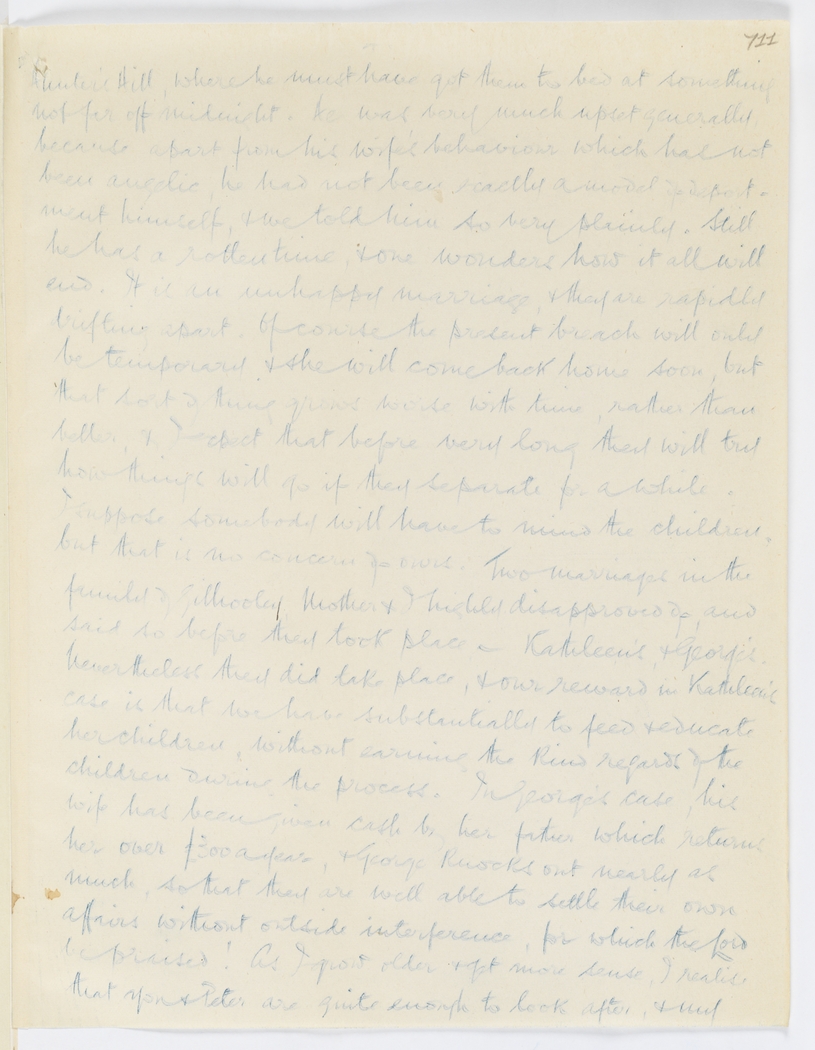 711
Hunter's Hill, where he must have got them to bed at something
not far off midnight. He was very much upset generally,
because apart from his wife's behaviour which has not
been angelic, he had not been exactly a model of deport-
ment himself, & we told him so very plainly. Still
he has a rotten time, & one wonders how it all will
end. It is an unhappy marriage, & they are rapidly
drifting apart. Of course the present breach will only
be temporary & she will come back home soon, but
that sort of thing grows worse with time, rather than
better, & I expect that before very long they will try
how things will go if they separate for a while.
I suppose somebody will have to mind the children,
but that is no concern of ours. Two marriages in the
family of Gilhooley Mother & I highly disapproved of, and
said so before they took place - Kathleen's, & George's.
Nevertheless they did take place, & our reward in Kathleen's
case is that we have substantially to feed & educate
her children, without earning the kind regards of the
children during the process. In George's case, his
wife has been given cash by her father which returns
her over £300 a year, & George knocks out nearly as
much, so that they are well able to settle their own
affairs without outside interference, for which the Lord
be praised! As I grow older & get more sense, I realise
that you & Peter are quite enough to look after, & my